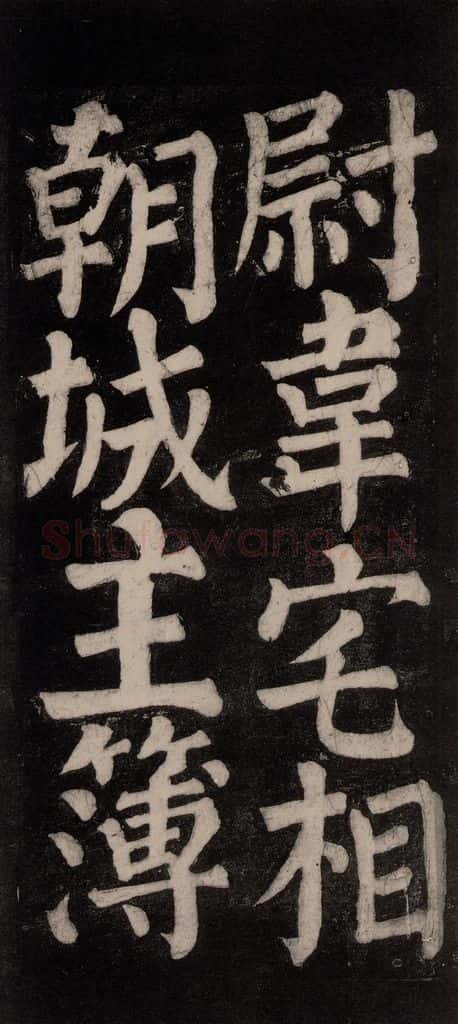 尉韋宅相
朝城主簿
Shufawang.CN